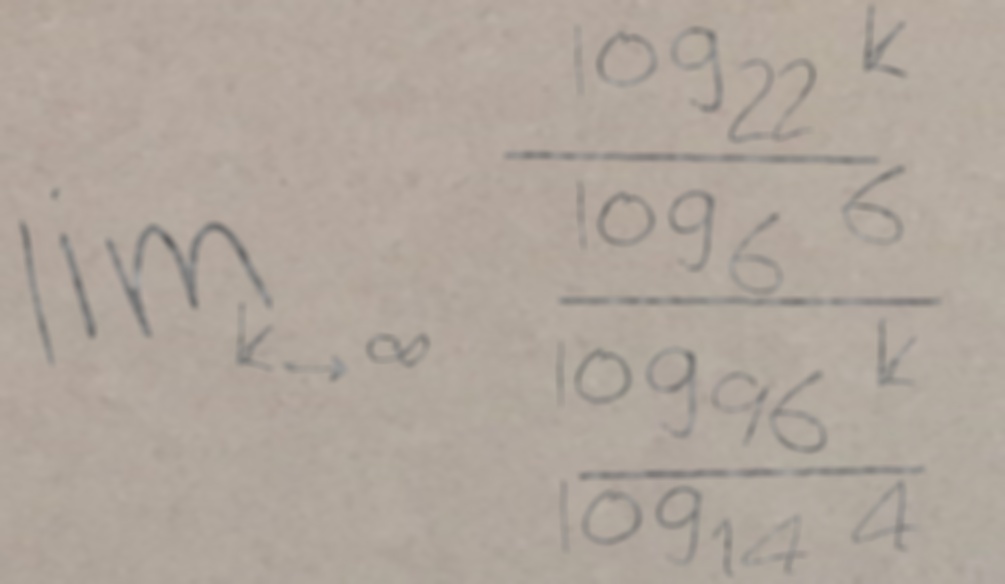 lim k→∞
log₂₂ k
log₆ 6
log₉₆ k
log₁₄ 4